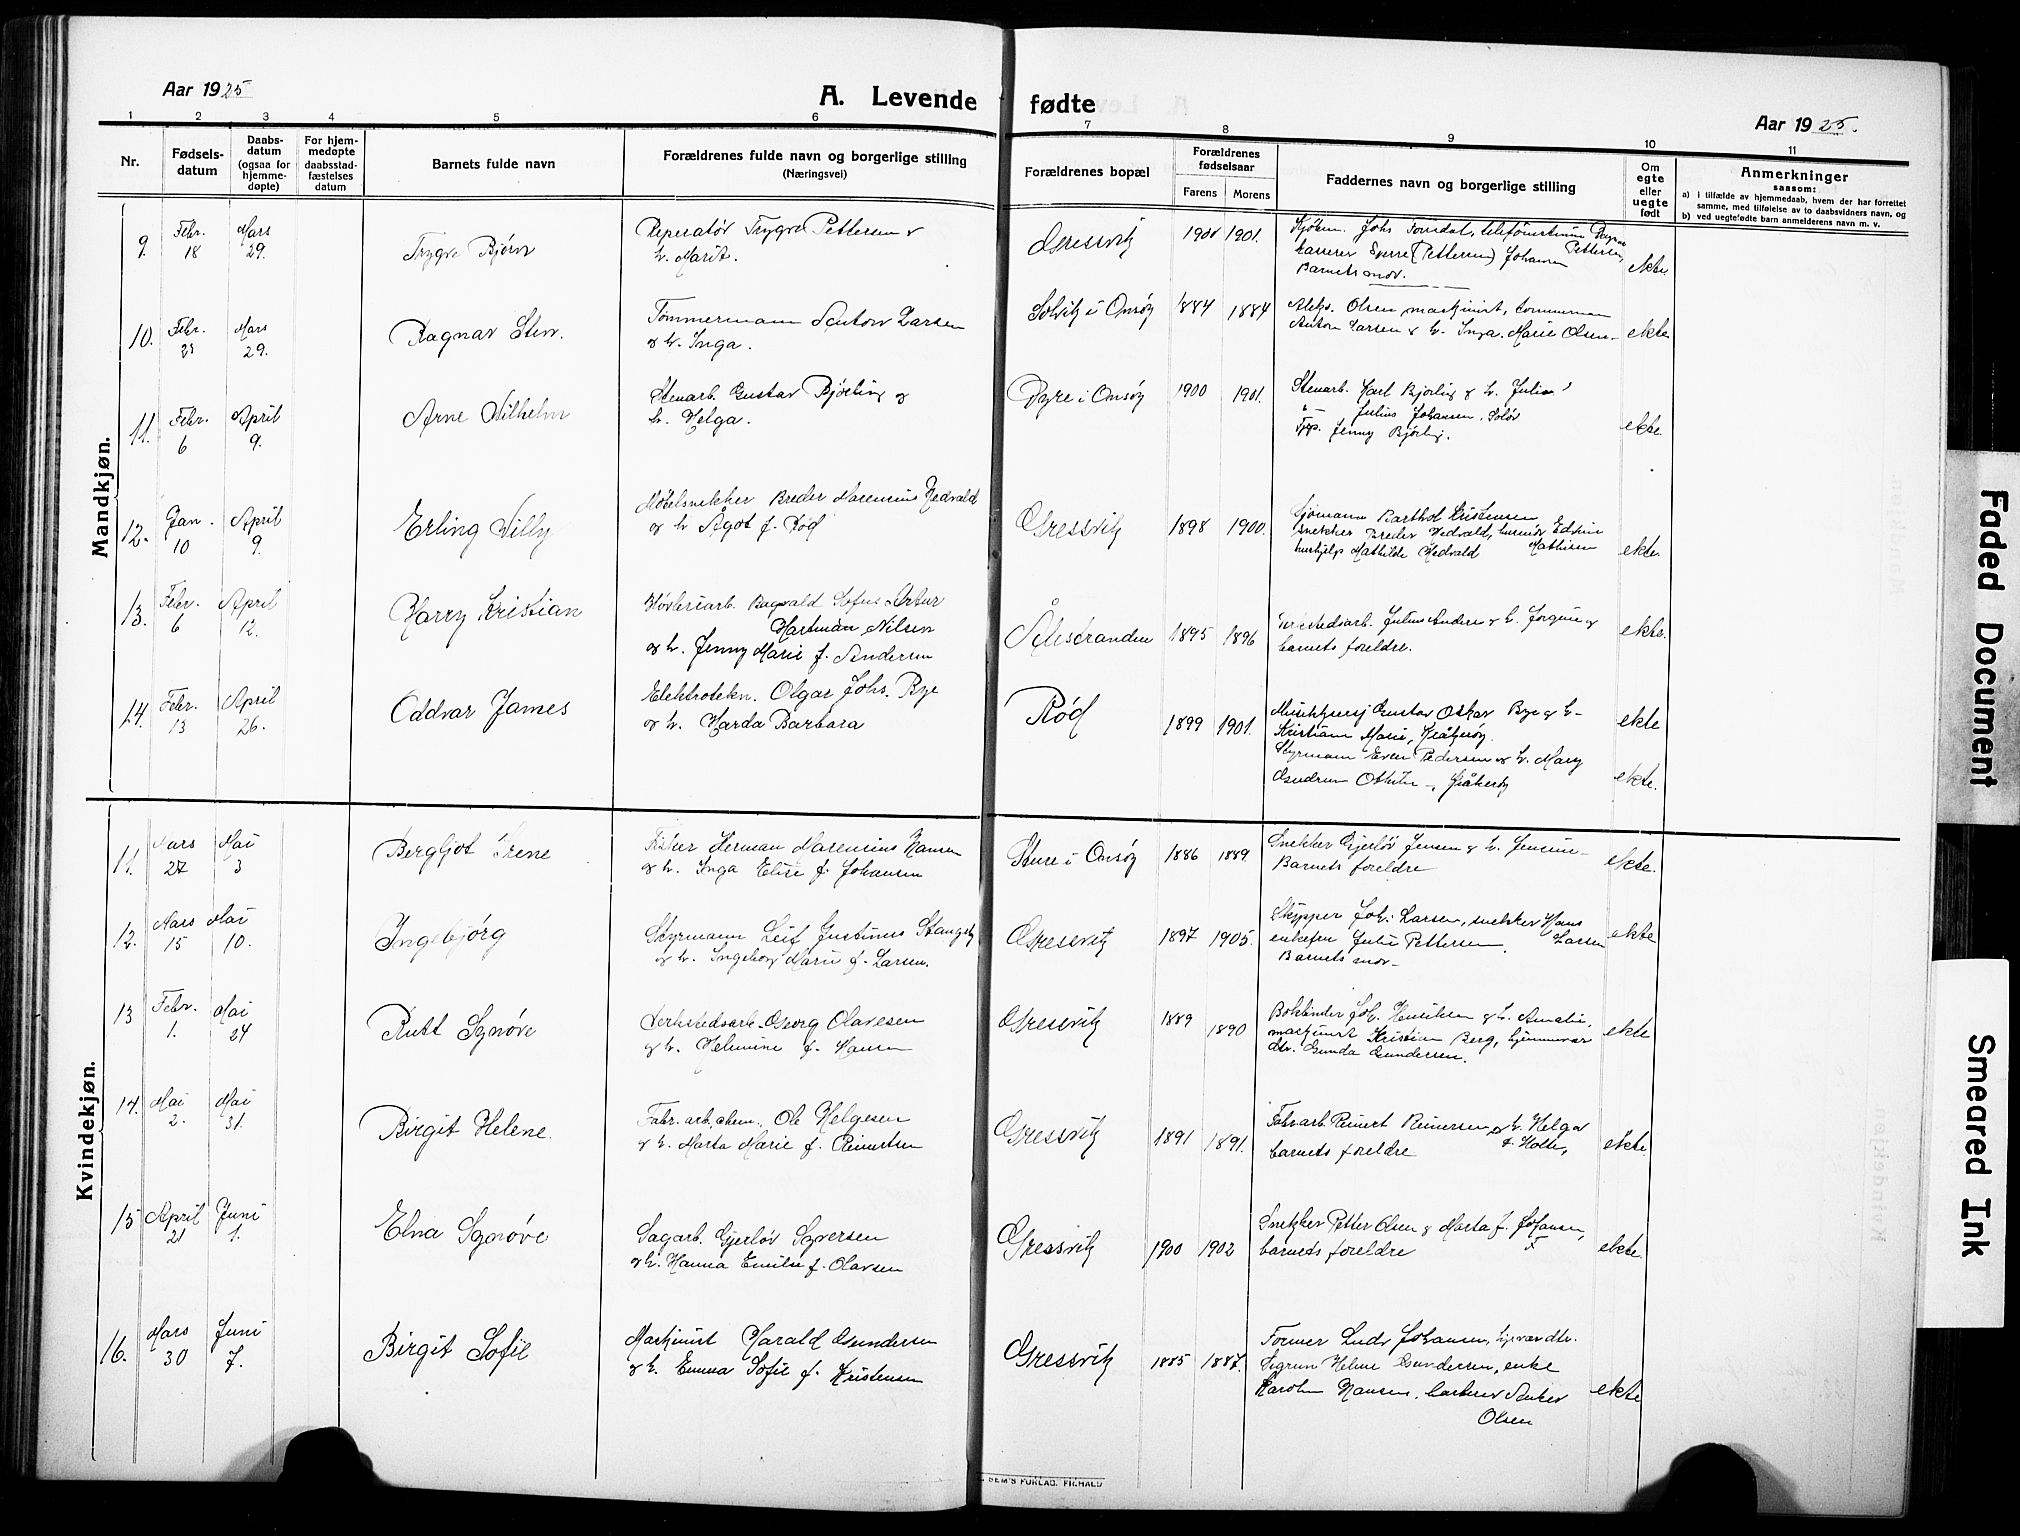 Aar 1925
A. Levende fødte
Aar 1925.
1 2 3 4 5 6 7 8 9 10 11
Nr.
Fødsels-
datum
Daabs-
datum
(ogsaa for
hjemme-
døpte)
For hjem-
medøpte
daabsstad-
fæstelses
datum
Barnets fulde navn
Forældrenes fulde navn og borgerlige stilling
(Næringsvei)
Forældrenes bopæl
Forældrenes
fødselsaar
Farens Morens
Faddernes navn og borgerlige stilling
Om
egte
eller
uegte
født
Anmerkninger
saasom:
a) i tilfælde av hjemmedaab, hvem der har forrettet
samme, med tilføielse av to daabsvidners navn, og
b) ved uegtefødte barn anmelderens navn m. v.
Mandkjøn.
9. Febr. 18 Mars 29. Trygve Bjørn
Reperatør Trygve Pettersen &
h. Marit.
Gressvik 1901.
Johs
Pettersen,
(Pettersen) Johansen
Barnets mor.
ekte
10. Febr. 25 Mars 29. Ragnar Sten.
Tømmermann Anton Larsen
og h. Inga.
Solvik i Onsøy 1884 1884
Aleks. Olsen, maskinist, tømmermann
Anton Larsen & h. Inga. Marie Olsen
ekte
11. Febr. 6 April 9. Arne Vilhelm
Stenarb. Gustav Bjørling og
h. Helga.
Dyre i Onsøy 1900 1901.
Stenarb. Karl Bjørling & h. Julie
Julius Johansen,
Jenny Bjørling.
ekte.
12. Jan. 10 April 9. Erling Villy
Møbelsnekker Breder Marensius Hedvald
og h Ågot f. Rød
Gressvik 1898 1900.
Sjømann Barthol Kristensen
snekker Breder Hedvald,
Mathilde Hedvald Mathisen
ekte
13. Febr. 6 April 12. Harry Kristian
Høvleriarb. Ragvald Sofus Artur
Hartman Nilsen
og h. Jenny Marie f. Andersen
Ålestranden 1895 1896
Verkstedsarb. Julius Andersen & h. Jørgine og
barnets foreldre.
ekte.
14. Febr. 13 April 26. Oddvar James
Elektrotekn. Olgar Johs. Bye
og h. Harda Barbara
Rød 1899 1901.
Gustav Oskar Bye & h.
Kristiane Marie, Kråkerøy
Styrmann Even Pedersen og h. Mary
Gudrun Kråkerøy
ekte
ekte.
Kvindekjøn.
11. Mars 27 Mai 3 Bergljot Irene
Fisker Herman Marensius Hansen
og h. Inga Elise f. Johansen
Sture i Onsøy 1886 1889.
Snekker Gjerløv Jensen & h. Jensine
Barnets foreldre
ekte.
12. Mars 15 Mai 10. Ingebjørg
Styrmann Leif Gustinus Stangeby
og h. Ingeborg Marie f. Larsen.
Gressvik 1897 1905.
Skipper Joh. Larsen, snekker Hans
Larsen
enkefru Julie Pettersen,
Barnets mor
ekte
13 Febr. 1. Mai 24 Rutt Synøve
Verkstedsarb. Georg Olavesen
og h. Helmine f. Hansen
Gressvik 1889 1890
Bokbinder Joh. Henriksen & h. Amalie,
maskinist Kristian Berg, hjemmevær
dtr. Gunda Gundersen.
ekte
14. Mai 2. Mai 31. Birgit Helene.
Fabr. arb. chem. Ole Helgesen
& h. Marta Marie f. Reinertsen
Gressvik 1891 1891.
Fabr arb Reinert Reinersen & h. Helga
f. Holte,
barnets foreldre
ekte.
15 April 21 Juni 1. Elna Synøve
Sagarb. Gjerløv Syversen
og h. Hanna Emilie f. Olavsen
Gressvik 1900 1902
Snekker Petter Olsen & Marta f. Johansen,
barnets foreldre
ekte.
16. Mars 30 Juni 7. Birgit Sofie
Maskinist Harald Gundersen
og h. Emma Sofie f. Kristensen
Gressvik 1885 1887.
Former Ludv Johansen, hjeværdtr.
Sigrun Helene Gundersen, enke
Karolin Hansen, Anker
Olsen
ekte
SEM'S FORLAG. FR.HALD
Faded Document
Smeared Ink